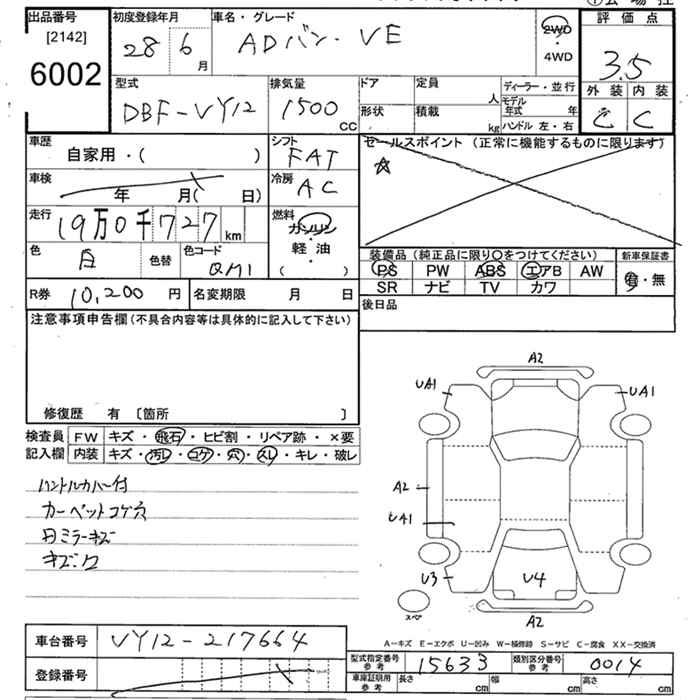 出品番号
[2142]
6002
初度登録年月
28年6月
車名・グレード
ADバン・VE
2WD
・
4WD
評価点
3.5
型式
DBF-VY12
排気量
1500
CC
ドア
形状
定員
人
積載
kg
ディーラー・並行
モデル年式 年
ハンドル 左・右
外装 内装
C C
車歴
自家用・( )
シフト
FAT
セールスポイント (正常に機能するものに限ります)
車検
年 月( 日)
冷房
AC
走行
19万0千727km
燃料
ガソリン
・
軽油
( )
色
白
色替
色コード
QM1
装備品 (純正品に限り○をつけてください)
新車保証書
PS PW ABS エアB AW
有・無
SR ナビ TV カワ
R券 10,200 円
名変期限 月 日
後日品
注意事項申告欄(不具合内容等は具体的に記入して下さい)
修復歴 有 〔箇所 〕
検査員
記入欄
FW キズ・飛石・ヒビ割・リペア跡・×要
内装 キズ・汚レ・コゲ・穴・スレ・キレ・破レ
ハンドルカバー付
カーペットコゲ穴
内ミラーキズ
A2
UA1
UA1
A2
UA1
U3
U4
A2
スペア
A-キズ E-エクボ U-凹み W-補修跡 S-サビ C-腐食 XX-交換済
車台番号 VY12-217664
登録番号
型式指定番号
参考
15633
類別区分番号
参考
0014
車庫証明用
参考
長さ cm 幅 cm 高さ cm